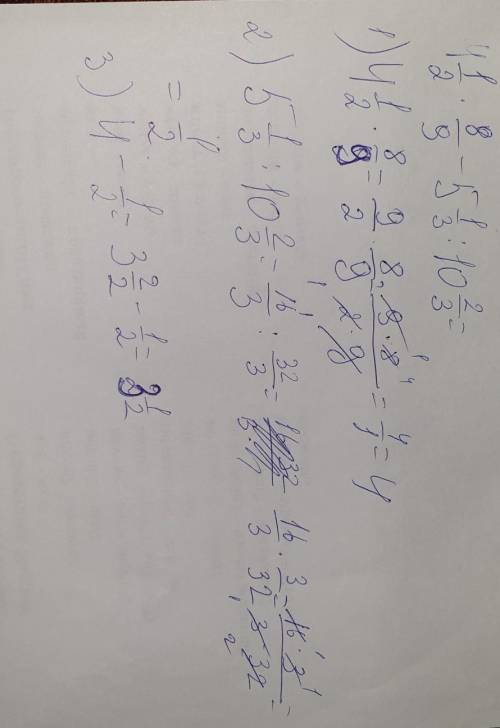 4 1/2 · 8/9 - 5 1/3 : 10 2/3 =
1) 4 1/2 · 8/9 = 9/2 · 8/9 = 9·8/2·9 = 4/1 = 4
2) 5 1/3 : 10 2/3 = 16/3 : 32/3 = 16/3 · 3/32 = 16·3/3·32 =
= 1/2
3) 4 - 1/2 = 3 2/2 - 1/2 = 3 1/2